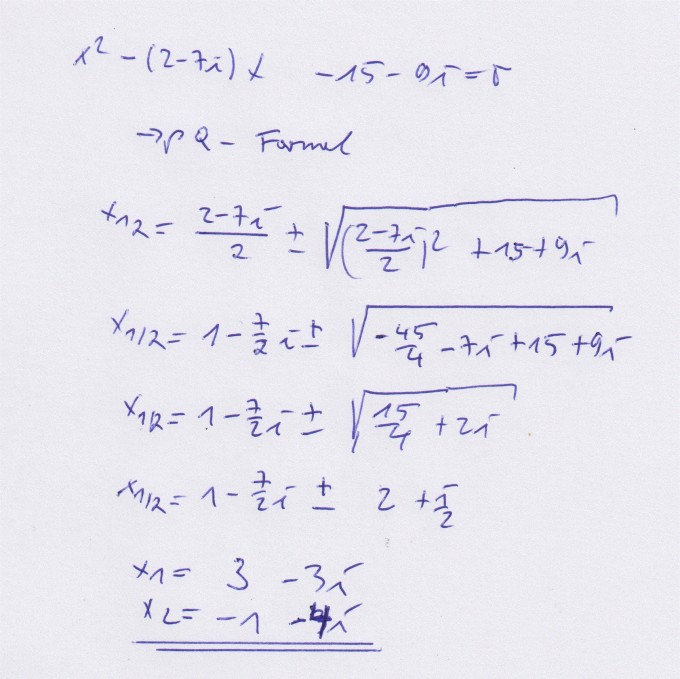 x² - (2-7i) x - 15 - 9i = 0
→ p Q - Formel
x₁₂ = (2-7i)/2 ± √(((2-7i)/2)² + 15 + 9i)
x₁/₂ = 1 - 7/2 i ± √(-45/4 - 7i + 15 + 9i)
x₁/₂ = 1 - 7/2 i ± √(15/4 + 2i)
x₁/₂ = 1 - 7/2 i ± 2 + i/2
x₁ = 3 - 3i
x₂ = -1 - 4i